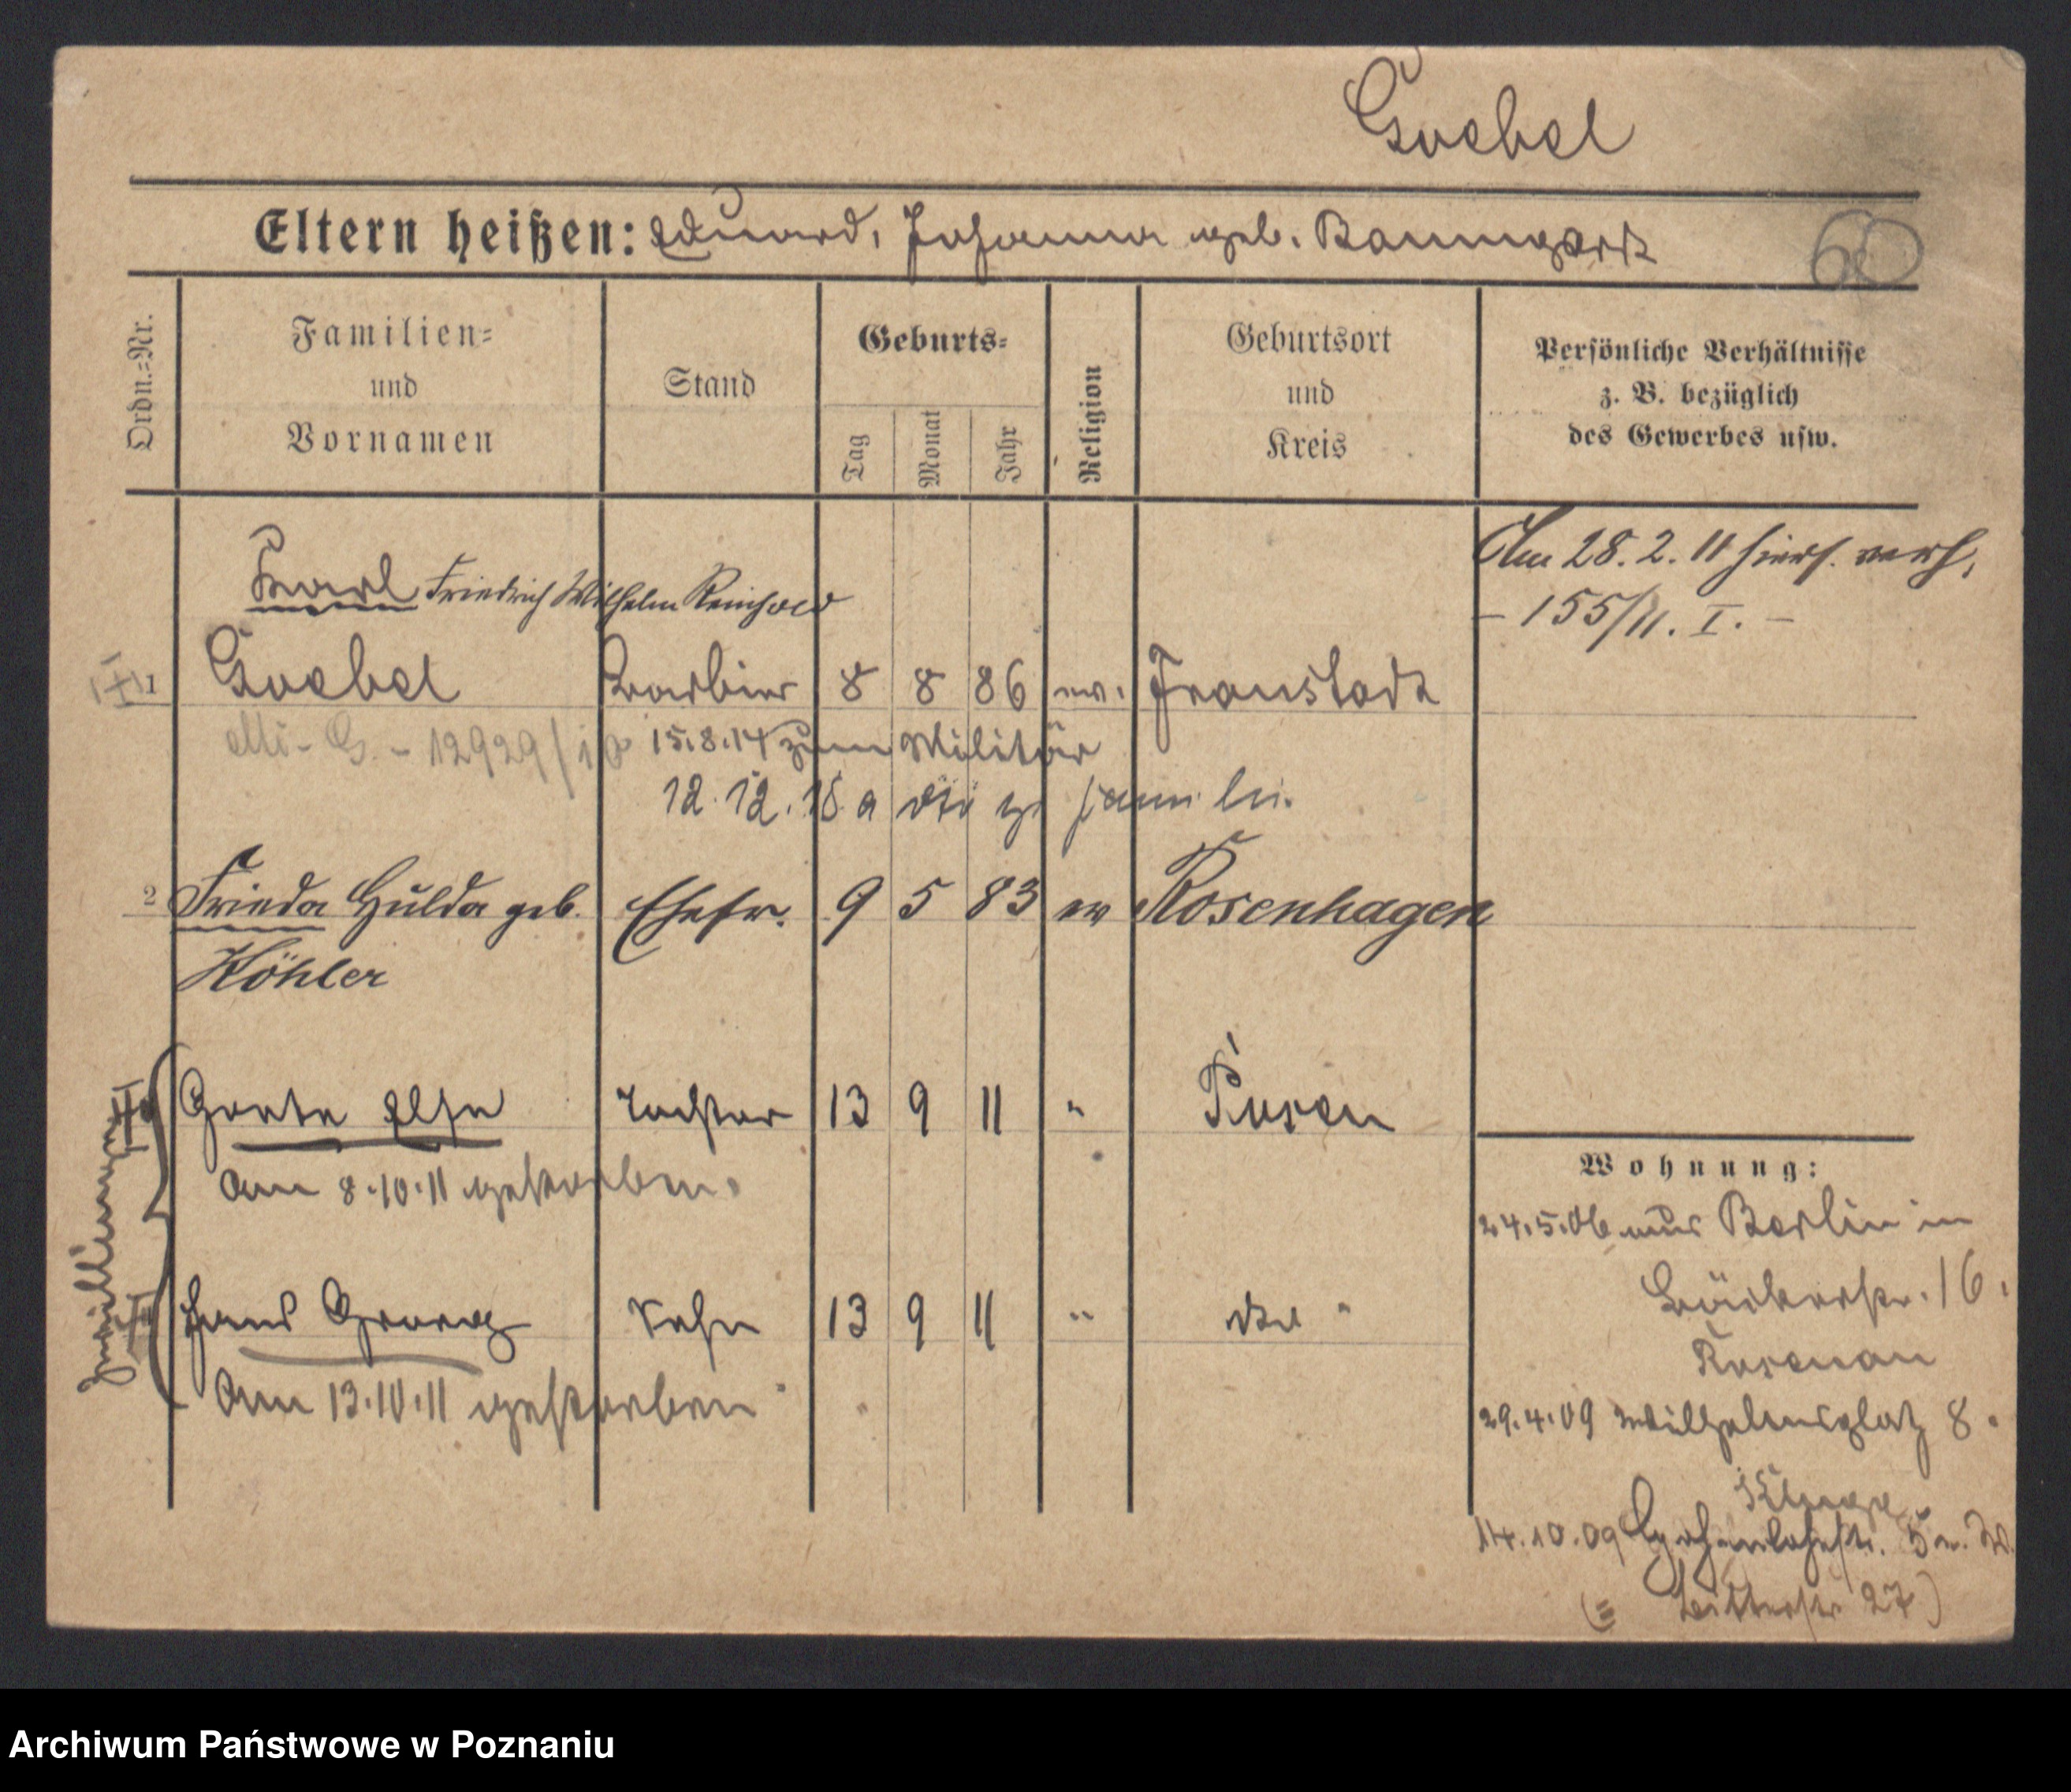 Goebel
Eltern heißen: Eduard, Johanna geb. Baumgart
60
Ordn.-Nr.
Familien- und Vornamen
Stand
Geburts-
Tag
Monat
Jahr
Religion
Geburtsort und Kreis
Persönliche Verhältnisse
z. B. bezüglich
des Gewerbes usw.
Am 28. 2. 11 hiers. verh.
- 155/11. I. -
Karl Friedrich Wilhelm Reinhold
1 Goebel Barbier 8 8 86 ev. Fraustadt
12929/10 15.8.14 zum Militär
12. 12. 18 a
2 Frieda Hulda geb. Ehefr. 9 5 83 ev Rosenhagen
Köhler
Zwillinge
Grete Else Tochter 13 9 11 " Posen
am 8.10.11 gestorben.
Hans Georg Sohn 13 9 11 " do "
am 13.10.11 gestorben
Wohnung:
24.5.06 aus Berlin in
Bäckerstr. 16.
Rosenau
29.4.09 Wilhelmsplatz 8.
14.10.09 Hohenlohestr. 5
(= Ritterstr 27)
Archiwum Państwowe w Poznaniu